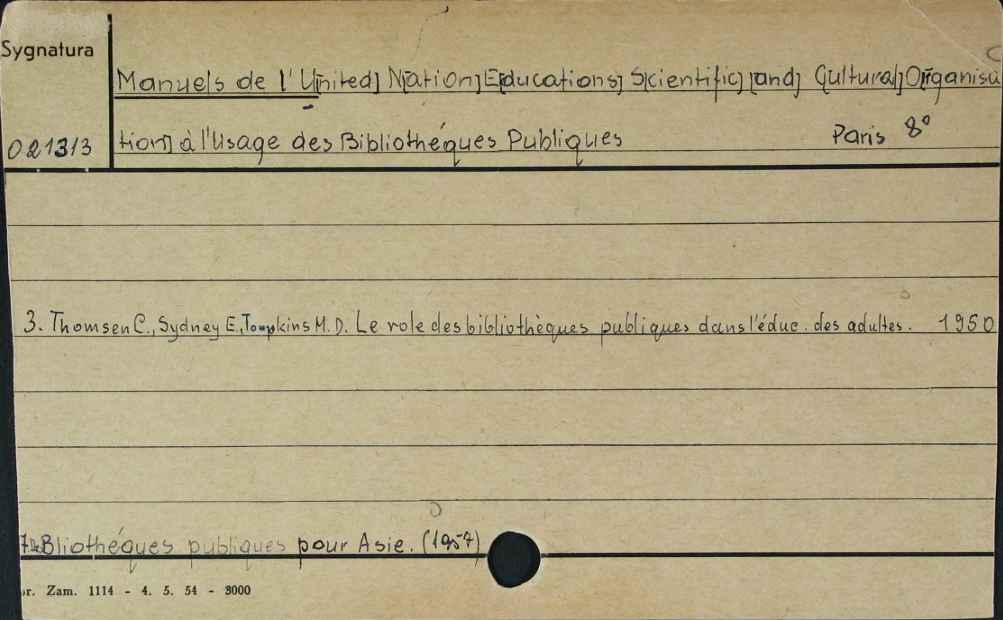 Sygnatura
Manuels de l'U[nited] N[ation] E[ducations] S[cientific] [and] Cultural] O[rganisa
021313
tion] à l'Usage des Bibliothéques Publiques Paris 8°
3. Thomsen C., Sydney E., Tompkins M. D. Le role des bibliothèques publiques dans l'éduc. des adultes. 1950
Bliothéques publiques pour Asie. (1957)
r. Zam. 1114 - 4. 5. 54 - 3000